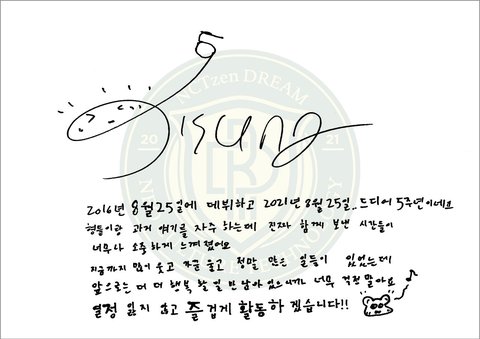 5
Jisung
NCTzen DREAM
20 21
2016년 8월25일에 데뷔하고 2021년 8월 25일..드디어 5주년이네요
형들이랑 과거 얘기를 자주 하는데 진짜 함께 보낸 시간들이
너무나 소중하게 느껴졌어요
지금까지 많이 웃고 자꾸 울고 정말 많은 일들이 있었는데
앞으로는 더 더 행복할 일만 남아 있으니까 너무 걱정 말아요
열정 잃지 않고 즐겁게 활동하겠습니다!!